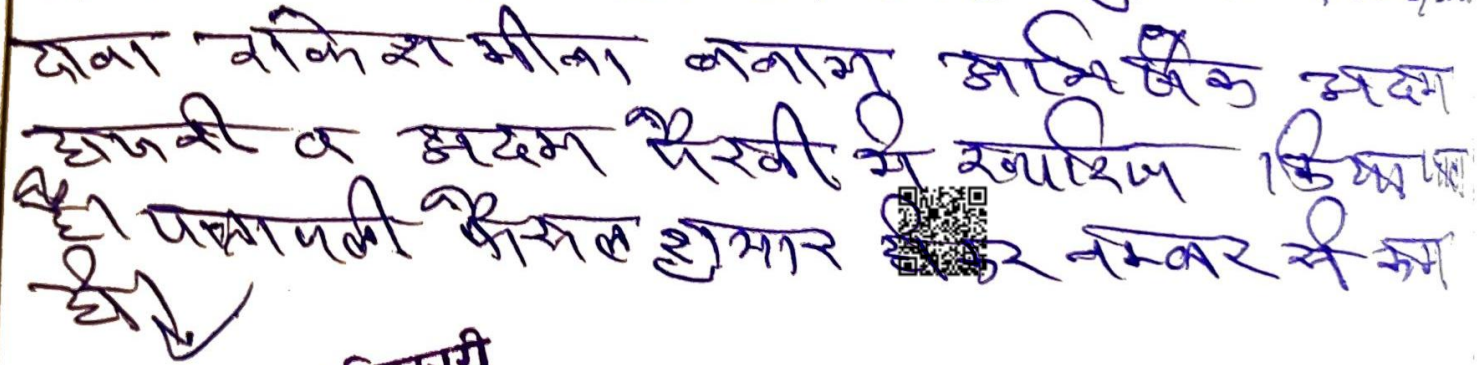 दावा राकेश मीना बनाम अभिषेक अदम
हाजरी व अदम पैरवी में खारिज किया जाता
है। पत्रावली फैसल शुमार होकर नम्बर से कम
हो।